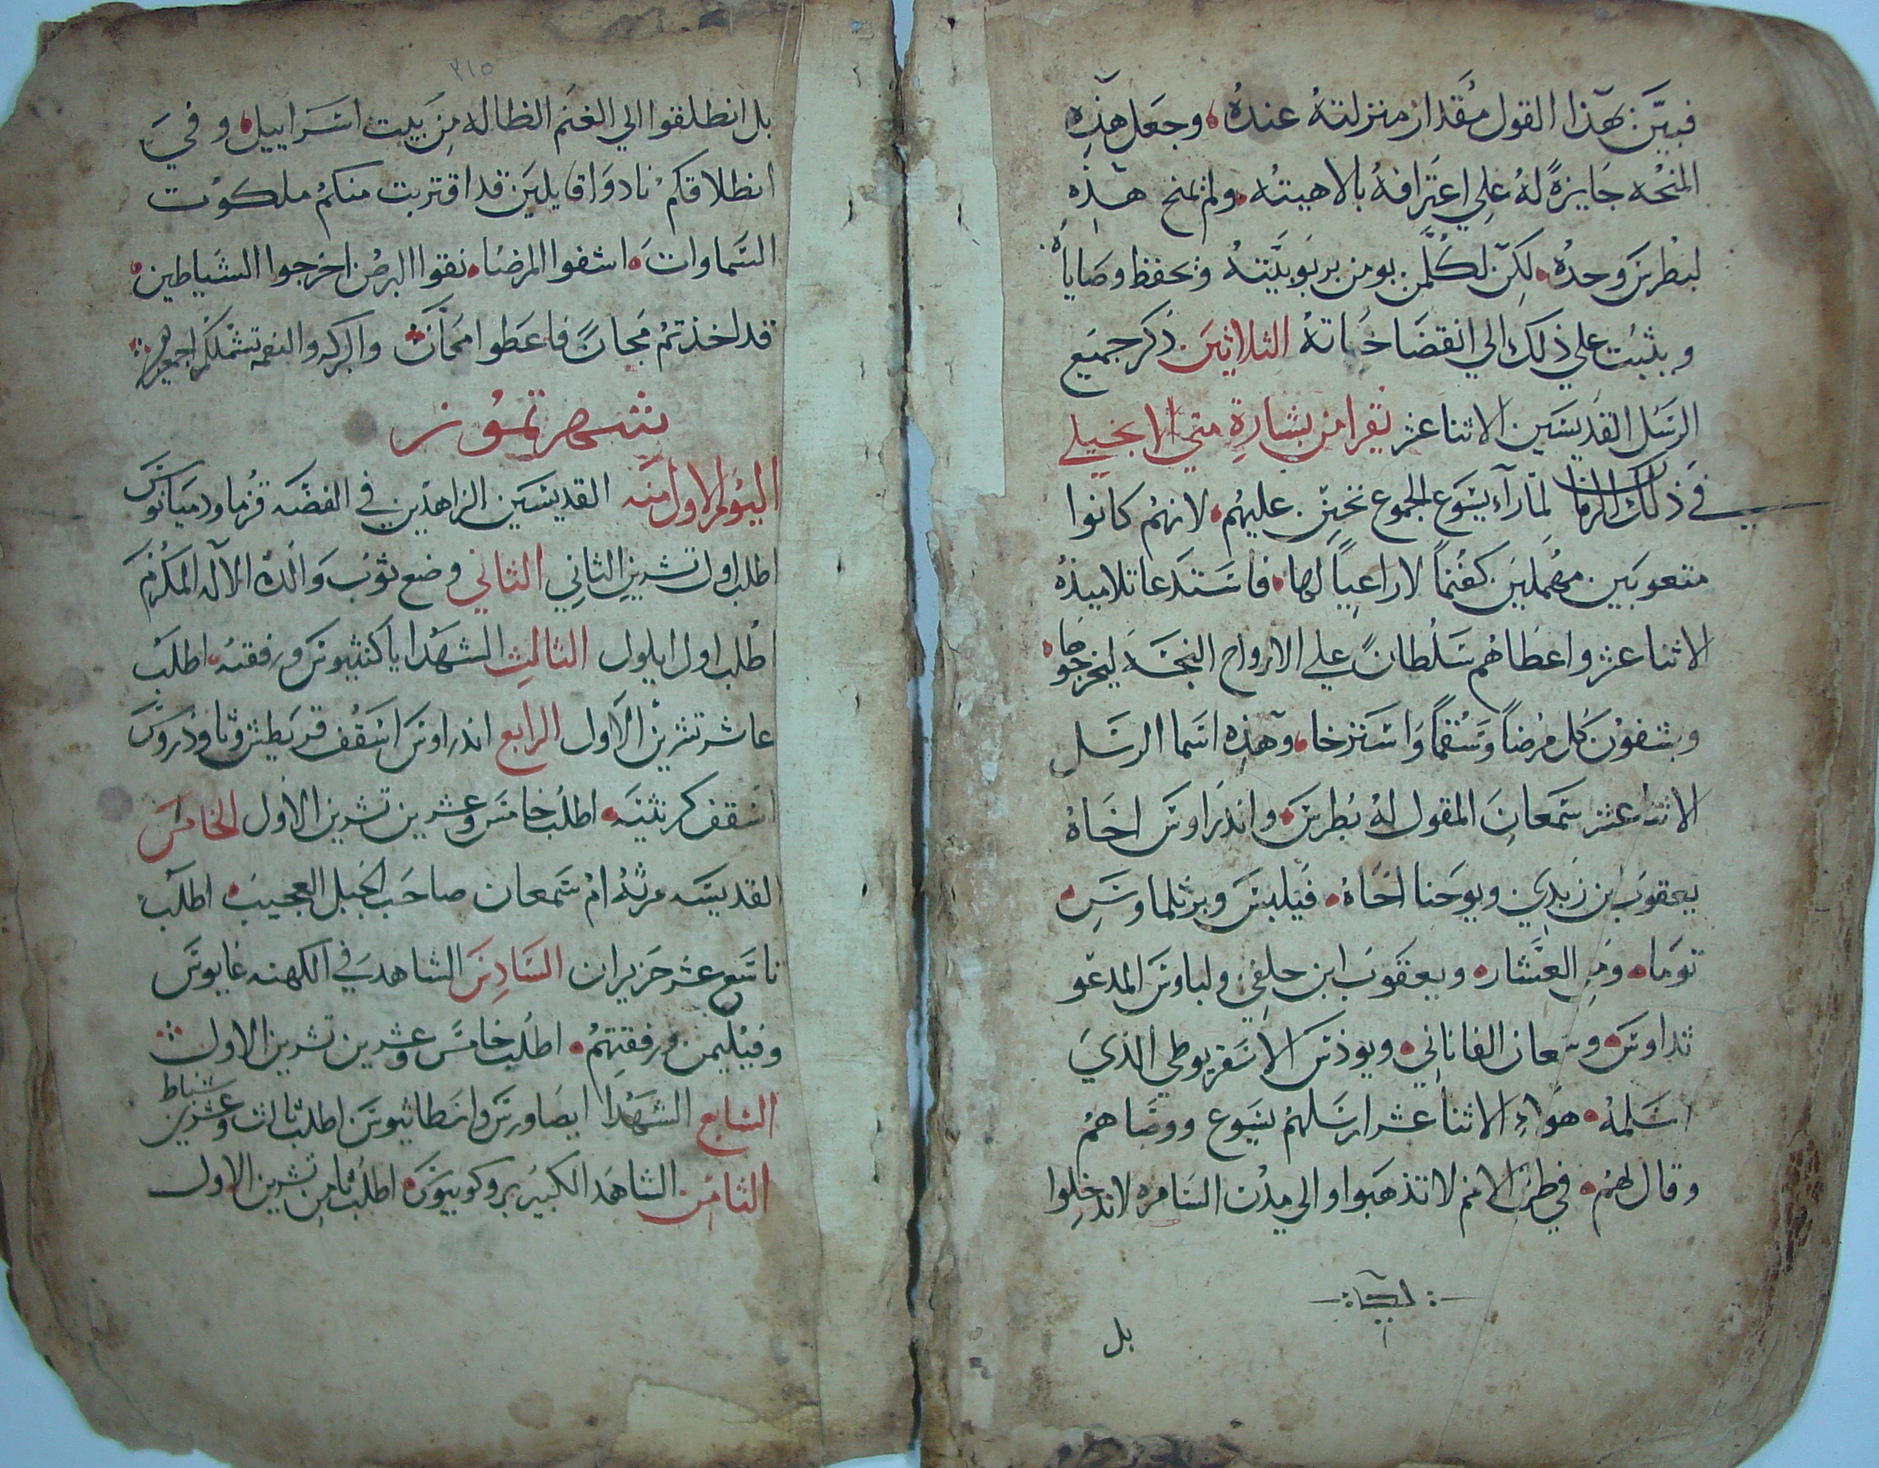 فبيَّن بهذا القول مُقدار منزلتهُ عندهُ وجعل هذِه
المنحُه جَايزةً لهُ علي اعترافهُ بالاهيتهُ ولم يمنح هذِه
لبطرسَ وحدهُ لكِن لكُلَّمن يومن بربَوبيَّتهُ ويحفظ وصَاياهُ
ويثبُت علي ذلك الي انقضَا حَياتهُ الثلاثِينَ ذكر جميَع
الرسَل القدِيسَين الاثنا عشر يقرا من بشارةِ متي الانجيلي
في ذلك الزمان لمّا رآء يسَوع الجموع تحنن عليهُم لانهُم كانوا
متعوبَين مهُملين كغُنماً لا راعياً لها فاسَتدعا تلاميذهُ
الاثنا عشر واعطَاهُم سَلُطاناً علي الارواح النجسَه ليخرجوُهَا
ويشفوُن كُل مرُضاً وسَُقماً واسَترخا وهذِه اسَما الرسَل
الاثنا عشر سَمعانَ المقول لهُ بُطرسَ واندَراوسَ اخَاهُ
يعقوبَ ابن زبدِي ويوحَنا اخَاهُ فيلبسَ وبرثلماوسَ
تومَا ومتي العشَّار ويعقوبَ ابن حلفي ولباوسَ المدعَو
تداوسَ وسمعان القاناني ويوذسَ الاسَقريوطي الذيَ
اسَلمهُ هوَلاءِ الاثنا عشر ارسَلهُم يسَوع ووصَّاهمُ
وقال لهُم في طرق الامم لا تذهبَوا والي مدُن السَامره لا تدخلِوا
بل
٢١٥
بل انطلقوا الي الغنَم الظاله مِن بَيت اسَراييل وفيَ
انطلاقكمُ نادوا قايلينَ قد اقتربت منكمُ ملكوُت
السَّماوات اشفوا المرضَا نقوا البرصُ اخرجوا الشَياطين
قد اخذتمُ مَجاناً فاعَطوا مَجاناً والبركه والنعمه تشملكُم اجمعين
شهر تموُز
اليَوم الاول منه القديسَين الزاهدَين في الفضّه قزُما ودميَانوسَ
اطلب اول تشرين الثاني الثاني وضع ثوبُ والَدة الآله المكُرم
اطُلب اول ايلول الثالثِ الشهَدا ياكنثيوسَ ورفقته اطلبُ
عاشر تشرين الاول الرابع اندراوسَ اسَقُف قريطش وثاوذروسَ
اسَقف كرنثيه اطلبُ خامسَ وعشرين تشرين الاول الخامسَ
القديسَه مرثهُ امُ سَمعان صاحَب الجبل العجيبَ اطلبُ
تاسَع عشر حَزيران السَادِسَ الشاهديَن في الكهنه غايوسَ
وفيُليمن ورفقتهِمُ اطلُب خامسَ وعشرين تشرين الاول
السَابع الشهَدا ايصَاورسَ وانسَطاثيوسَ اطلبُ ثالث وعشرين
شباط
الثامَن الشاهَد الكبيَر بروكوبيوسَ اطلُب ثامن تشرين الاول